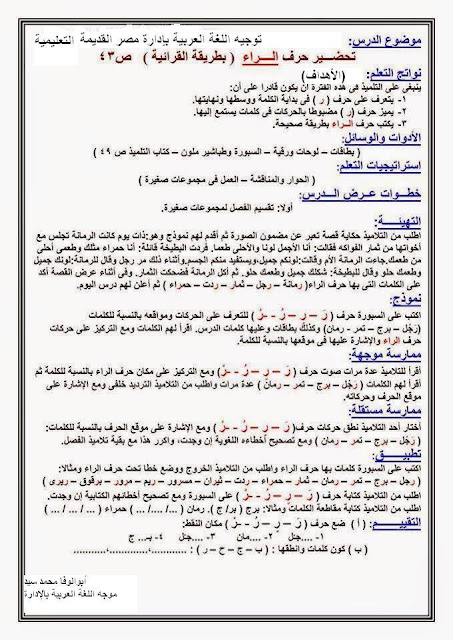 موضوع الدرس: توجيه اللغة العربية بإدارة مصر القديمة التعليمية
تحضـــير حرف الـــراء ( بطريقة القرائية ) ص٤٣
نواتج التعلم: (الأهداف)
ينبغى على التلميذ فى هذه الفترة أن يكون قادرا على أن:
١- يتعرف على حرف ( ر ) فى بداية الكلمة ووسطها ونهايتها.
٢- يميز حرف ( ر) مضبوطا بالحركات فى كلمات يستمع إليها.
٣- يكتب حرف الـراء بطريقة صحيحة.
الأدوات والوسائل:
( بطاقات – لوحات ورقية – السبورة وطباشير ملون – كتاب التلميذ ص ٤٩ )
استراتيجيات التعلم:
( الحوار والمناقشة – العمل فى مجموعات صغيرة )
خطــوات عــرض الــدرس:
أولا: تقسيم الفصل لمجموعات صغيرة.
التهيئـــة:
اطلب من التلاميذ حكاية قصة تعبر عن مضمون الصورة ثم أقدم لهم نموذج وهو:ذات يوم كانت الرمانة تجلس مع
أخواتها من ثمار الفواكه فقالت: أنا الأجمل لونا والأحلى طعما. فردت البطيخة قائلة: أنا حمراء مثلك وطعمى أحلى
من طعمك.جاءت الرمانة الأم وقالت:لونكم جميل،ويستفيد منكم الجسم.وأثناء ذلك مر رجل وقال للرمانة:لونك جميل
وطعمك حلو وقال للبطيخة: شكلك جميل وطعمك حلو. ثم أكل الرمانة فضحكت الثمار. وفى أثناء عرض القصة أكد
على الكلمات التى بها حرف الراء( رمانة – رجل – ثمار – ردت – حمراء ) ثم أعلن لهم درس اليوم.
نموذج:
اكتب على السبورة حرف ( رَ – رِ – رُ - -رْ ) للتعرف على الحركات ومواقعه بالنسبة للكلمات
(رَجُل – برج – تمر - رمان) وكذلك بطاقات وعليها كلمات الدرس. اقرأ لهم الكلمات ومع التركيز على حركات
حرف الراء والإشارة عليها فى موقعها بالنسبة للكلمة.
ممارسة موجهة:
أقرأ للتلاميذ عدة مرات صوت حرف ( رَ – رِ – رُ - -رْ ) ومع التركيز على مكان حرف الراء بالنسبة للكلمة ثم
أقرأ لهم الكلمات ( رَجُل – برج – تمر – رمان ) عدة مرات واطلب من التلاميذ الترديد خلفى ومع الإشارة على
موقع الحرف وحركاته.
ممارسة مستقلة:
أختار أحد التلاميذ نطق حركات حرف( رَ – رِ – رُ - -رْ ) ومع الإشارة على موقع الحرف بالنسبة للكلمات:
( رَجُل – برج – تمر – رمان ) ومع تصحيح أخطاءه اللغوية إن وجدت، واكرر هذا مع بقية تلاميذ الفصل.
تطبيـــــق:
اكتب على السبورة كلمات بها حرف الراء واطلب من التلاميذ الخروج ووضع خطا تحت حرف الراء ومثالا:
( رجل – برج – تمر – رمان – ثمار – حمراء – ردت – ثيران – مسرور – ريم – مرور – برقوق – ريرى )
اطلب من التلاميذ كتابة حرف ( رَ – رِ – رُ - -رْ ) على السبورة ومع تصحيح أخطائهم الكتابية إن وجدت.
اطلب من التلاميذ كتابة مقاطعة الكلمات ومثالا: برج ( بر/ ج ). رمان (.../ ... /... ) حمراء ( ... / ... / ... )
التقييـــم: ( أ ) ضع حرف ( رَ – رِ – رُ - -رْ ) مكان النقط:
١- ....جل ٢- ....مان ٣- ....جل ٤- بـ... ج
( ب ) كون كلمات وانطقها : ( ب – ج – ح – ر ) : ............،............،............
أبوالوفا محمد سيد
موجه اللغة العربية بالإدارة